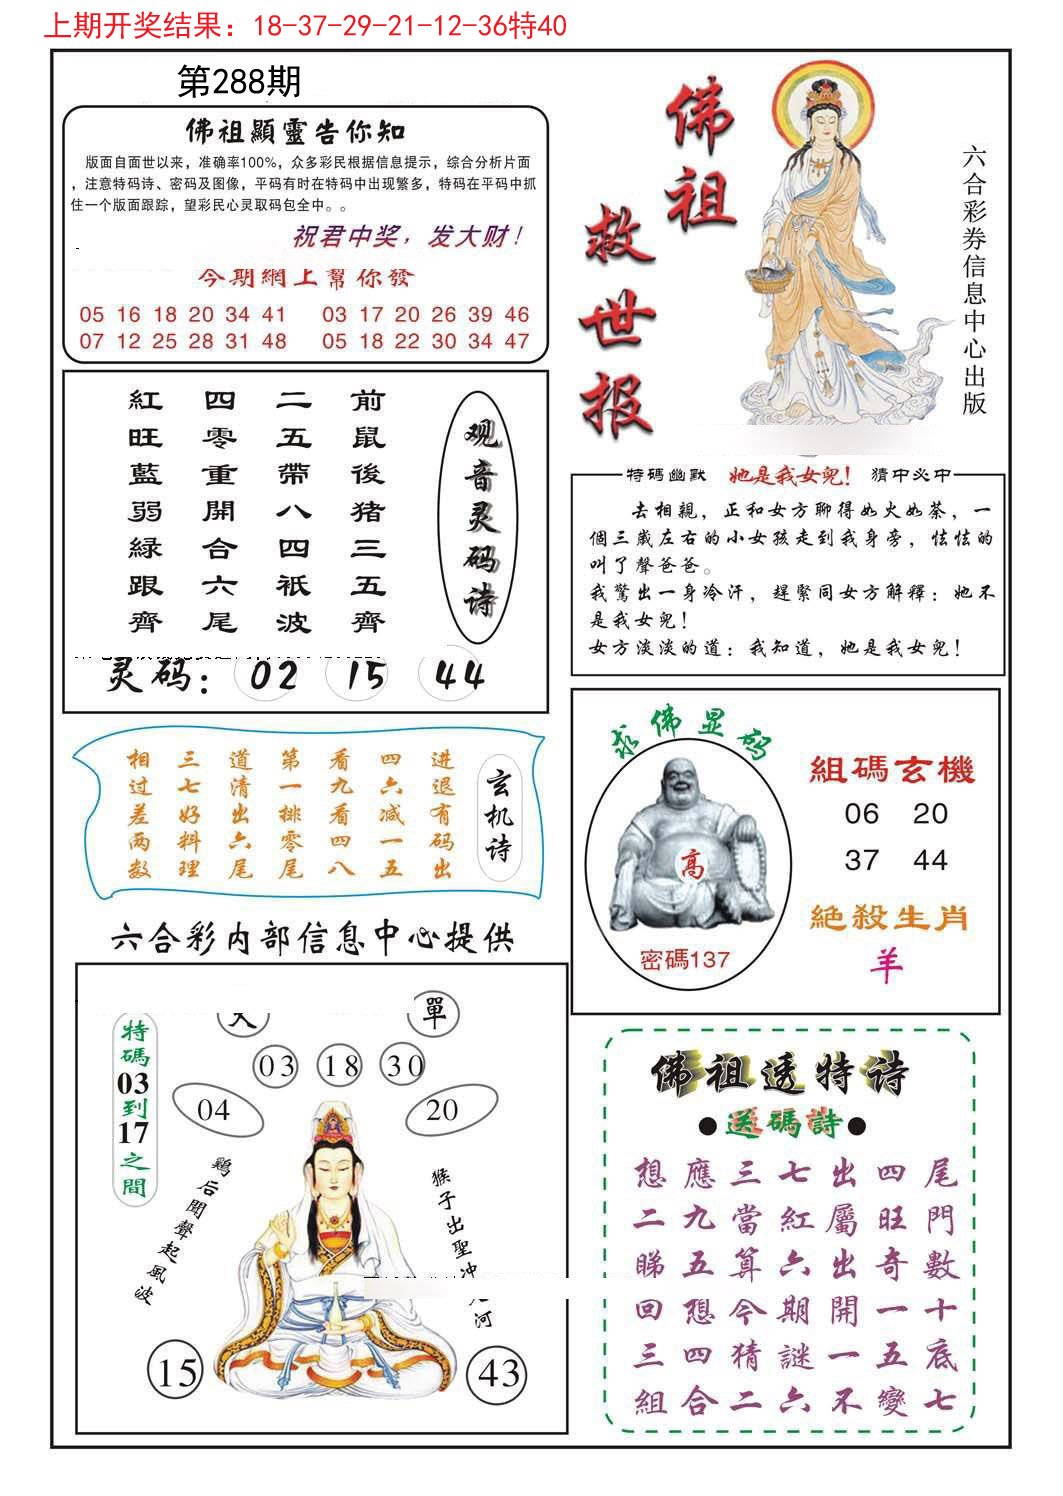 上期开奖结果：18-37-29-21-12-36特40
第288期
佛祖顯靈告你知
版面自面世以来，准确率100%，众多彩民根据信息提示，综合分析片面
，注意特码诗、密码及图像，平码有时在特码中出现繁多，特码在平码中抓
住一个版面跟踪，望彩民心灵取码包全中。。
祝君中奖，发大财！
今期網上幫你發
05 16 18 20 34 41 03 17 20 26 39 46
07 12 25 28 31 48 05 18 22 30 34 47
佛祖
救世报
六合彩券信息中心出版
前鼠後猪三五齊
二五帶八四祇波
四零重開合六尾
紅旺藍弱緑跟齊
观音灵码诗
灵码：02 15 44
特碼幽默 她是我女兒！ 猜中必中
去相親，正和女方聊得如火如荼，一
個三歲左右的小女孩走到我身旁，怯怯的
叫了聲爸爸。
我驚出一身冷汗，趕緊同女方解釋：她不
是我女兒！
女方淡淡的道：我知道，她是我女兒！
玄机诗
进退有码出
四六减一五
看九看四八
第一排零尾
道清出六尾
三七好料理
相过差两数
求佛显码
高
密碼137
組碼玄機
06 20
37 44
絕殺生肖
羊
六合彩内部信息中心提供
單
03 18 30
04 20
特碼03到17之間
鷄后聞聲起風波
猴子出聖冲
河
15 43
佛祖透特诗
●送碼詩●
想應三七出四尾
二九當紅屬旺門
睇五算六出奇數
回想今期開一十
三四猜謎一五底
組合二六不變七